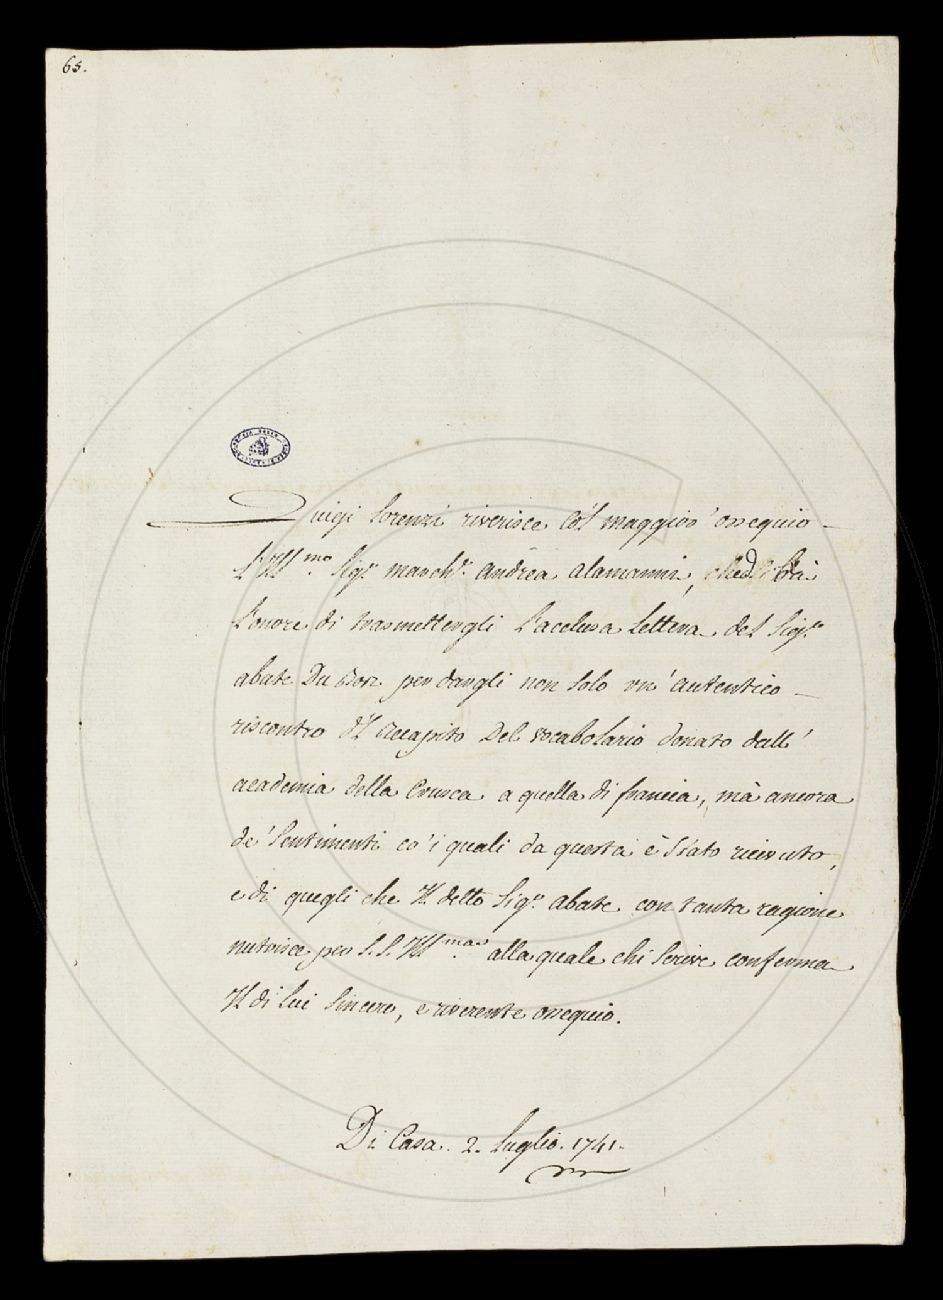 65.
Luigi Lorenzi riverisce col maggior' ossequio
l'Ill.mo Sig.r march.e Andrea Alamanni,
l'onore di trasmettergli l'acclusa lettera del Sig.re
abate Du Bos per dargli non solo un' autentico
riscontro del recapito del vocabolario donato dall'
academia della Crusca a quella di francia, mà ancora
de' sentimenti co' i quali da questa è stato ricevuto,
e di quegli che Il detto Sig.r abate con tanta ragione
nutrisce per S.S. Ill.ma alla quale chi scrive conferma
Il di lui sincero, e riverente ossequio.
Di Casa. 2. luglio. 1741.